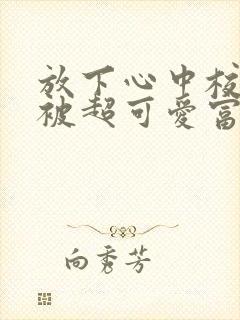 放下心中校
被超可爱富
向秀芳